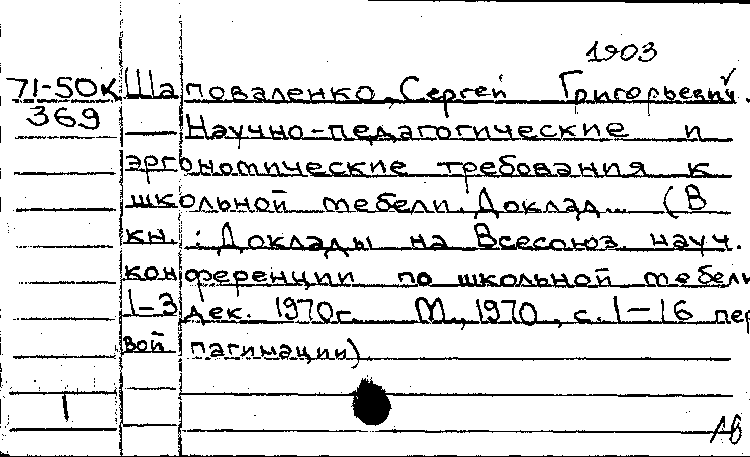 1903
71-50к Шаповаленко, Сергей Григорьевич.
369 Научно-педагогические и
эргономические требования к
школьной мебели. Доклад... (В
кн.: Доклады на Всесоюз. науч.
конференции по школьной мебели
1-3 дек. 1970г. М., 1970, с. 1-16 пер
вой пагинации).
1